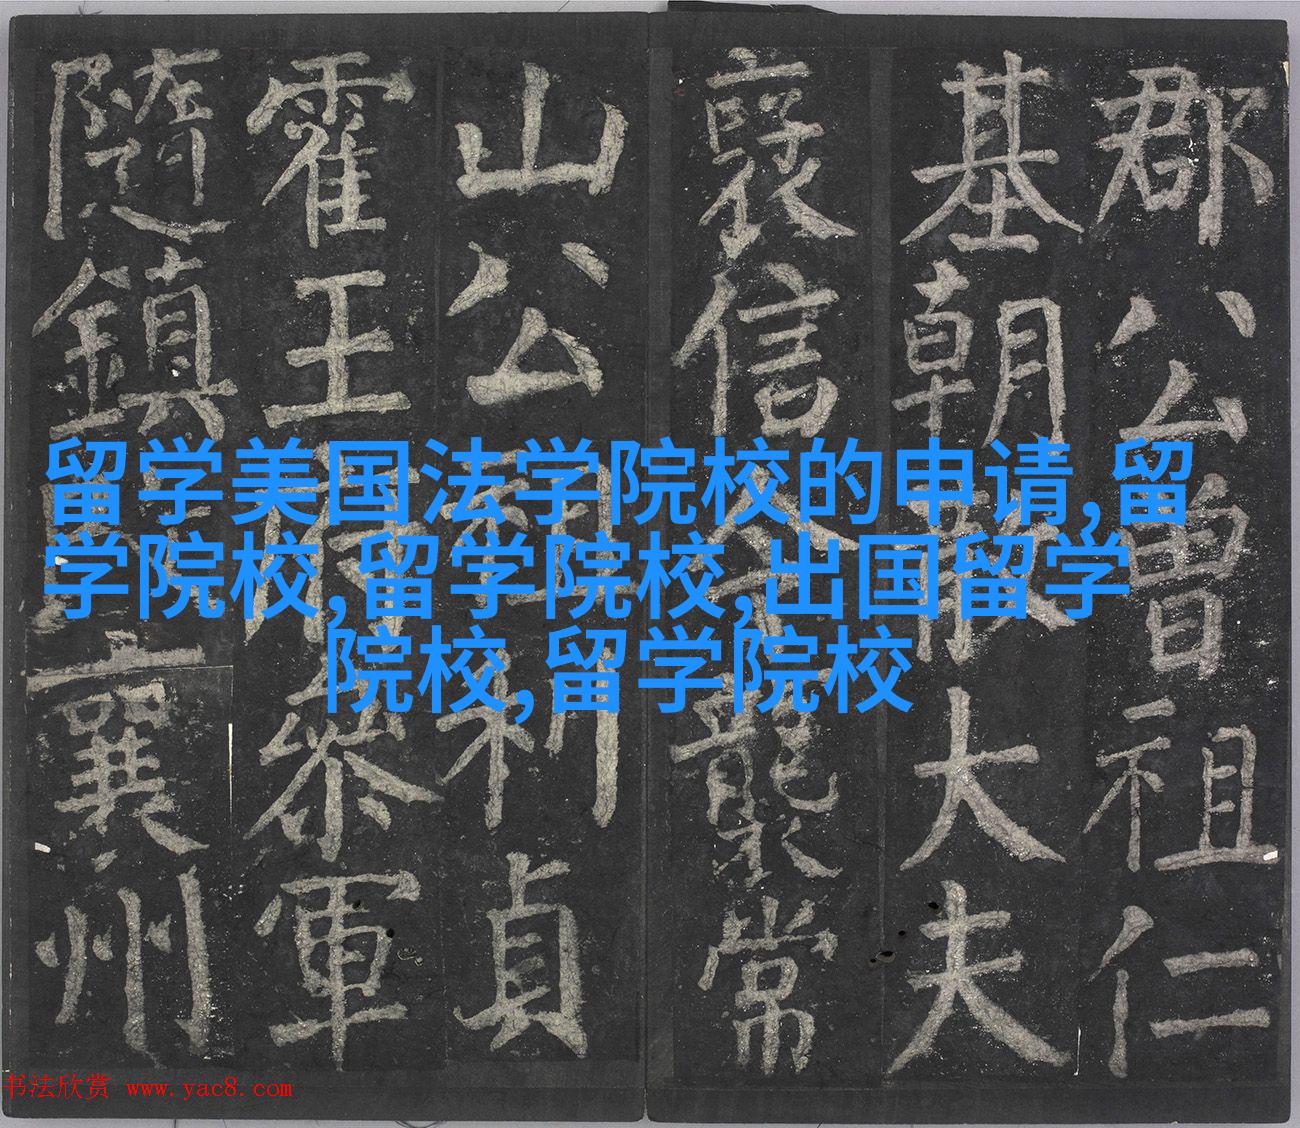 郡公曾祖仁
基朝散大夫
襲信公襲常
山公利貞
霍王府參軍
隨鎮襄州
留学美国法学院校的申请,留
学院校,留学院校,出国留学
院校,留学院校
书法欣赏 www.yac8.com